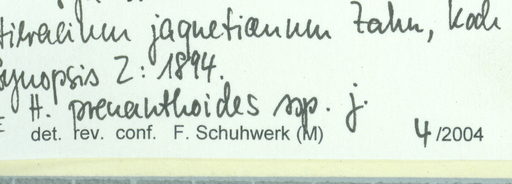 Hieracium jaquetianum Zahn, Koch
Synopsis 2: 1894.
H. prenanthoides ssp. j.
det. rev. conf. F. Schuhwerk (M) 4/2004